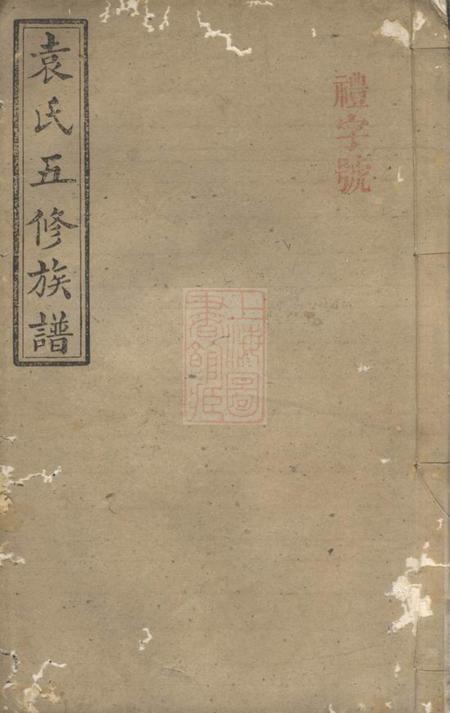 禮字號
袁氏五修族譜
上海圖
書館藏